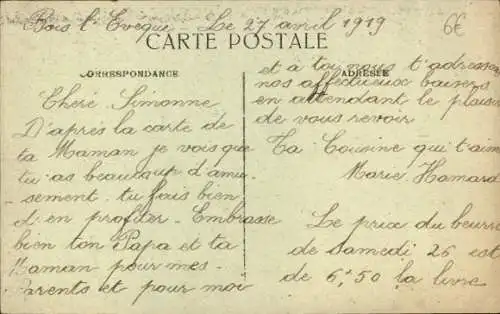 Bois l'Evêque Le 27 avril 1919
6€
CARTE POSTALE
CORRESPONDANCE
ADRESSE
Chère Simonne
D'après la carte de
ta Maman je vois que
tu as beaucoup d'amu-
-sement. tu fais bien
d'en profiter. Embrasse
bien ton Papa et ta
Maman pour mes
Parents et pour moi
et à toi nous t'adressons
nos affectueux baisers
en attendant le plaisir
de vous revoir
Ta Cousine qui t'aime
Marie Hamard
Le prix du beurre
de samedi 26 est
de 6,50 la livre